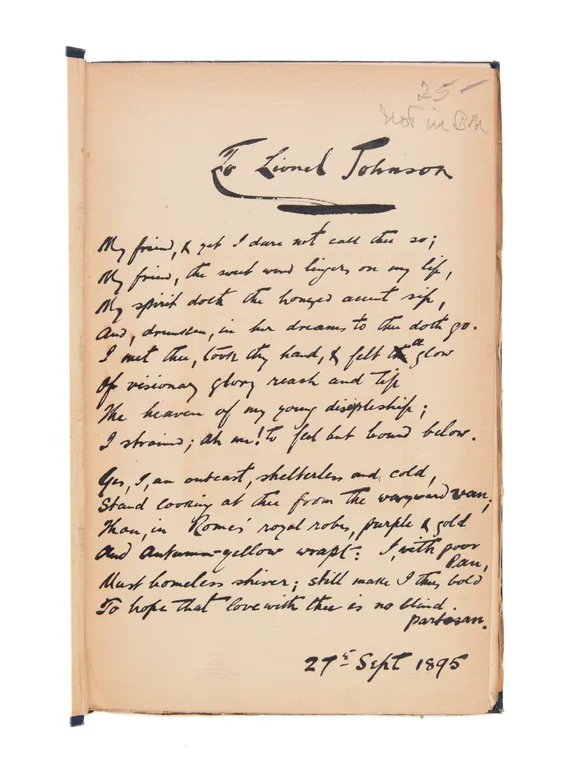 25 -
Not in DM
To Lionel Johnson
My friend, & yet I dare not call thee so;
My friend, the sweet word lingers on my lip,
My spirit doth the honeyed accent sip,
And, drunken, in her dreams to thee doth go.
I met thee, took thy hand, & felt a glow
Of visionary glory reach and tip
The heaven of my young discipleship;
I strained; ah me! to feel but bound below.
Yes, I, an outcast, shelterless and cold,
Stand looking at thee from the wayward van;
Thou, in Rome's royal robes, purple & gold
And Autumn-yellow wrapt: I, with poor
Pan,
Must homeless shiver; still make I thus bold
To hope that love with thee is no blind
partisan.
27th Sept 1895